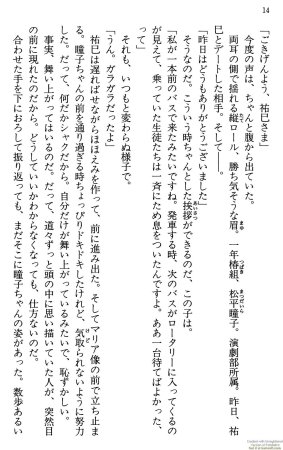 14
「ごきげんよう、祐巳さま」
今度の声は、ちゃんと腹から出ていた。
両耳の側で揺れる縦ロール、勝ち気そうな眉。一年椿組、松平瞳子。演劇部所属。昨日、祐
巳とデートした相手。そして――。
「昨日はどうもありがとうございました」
そうなのだ。こういう時ちゃんとした挨拶ができるのだ、この子は。
「私が一本前のバスで来たみたいですね。発車する時、次のバスがロータリーに入ってくるの
が見えて、乗っていた生徒たちは一斉にため息をついたんですよ。ああ一台待てばよかった、
って」
それも、いつもと変わらぬ様子で。
「うん。ガラガラだったよ」
祐巳は遅ればせながらほほえみを作って、前に進み出た。そしてマリア像の前で立ち止ま
る。瞳子ちゃんの前を通り過ぎる時ちょっぴりドキドキしたけれど、気取られないように努力
した。だって、何だかシャクだから。自分だけが舞い上がっているみたいで、恥ずかしい。
事実、舞い上がってはいるのだ。だって、道々ずっと頭の中に思い描いていた人が、突然目
の前に現れたのだから。どうしていいかわからなくなっても、仕方ないのだ。
合わせた手を下におろして振り返っても、まだそこに瞳子ちゃんの姿があった。数歩あるい